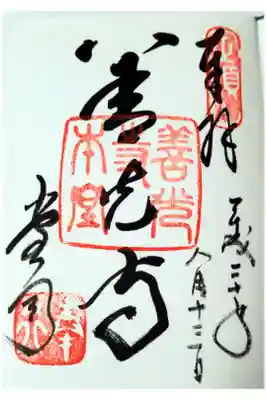 定額
奉拝
平成二十年
八月十三日
善光寺
善光
寺
本堂
堂司